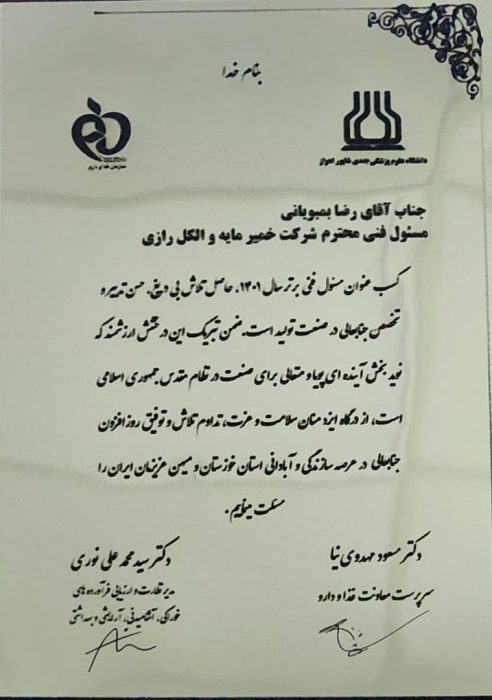 بنام خدا
سازمان غذا و دارو
دانشگاه علوم پزشکی جندی شاپور اهواز
جناب آقای رضا بمبویانی
مسئول فنی محترم شرکت خمیر مایه و الکل رازی
کسب عنوان مسئول فنی برتر سال ۱۴۰۱، حاصل تلاش بی دریغ، حسن تدبیر و
تخصص جنابعالی در صنعت تولید است. ضمن تبریک این درخشش ارزشمند که
نوید بخش آینده ای پویا و متعالی برای صنعت در نظام مقدس جمهوری اسلامی
است، از درگاه ایزد منان سلامت و عزت، تداوم تلاش و توفیق روزافزون
جنابعالی در عرصه سازندگی و آبادانی استان خوزستان و میهن عزیزمان ایران را
مسئلت مینمایم.
دکتر مسعود مهدوی نیا
سرپرست معاونت غذا و دارو
دکتر سید محمد علی نوری
مدیر نظارت و ارزیابی فرآورده های
خوراکی، آشامیدنی، آرایشی و بهداشتی